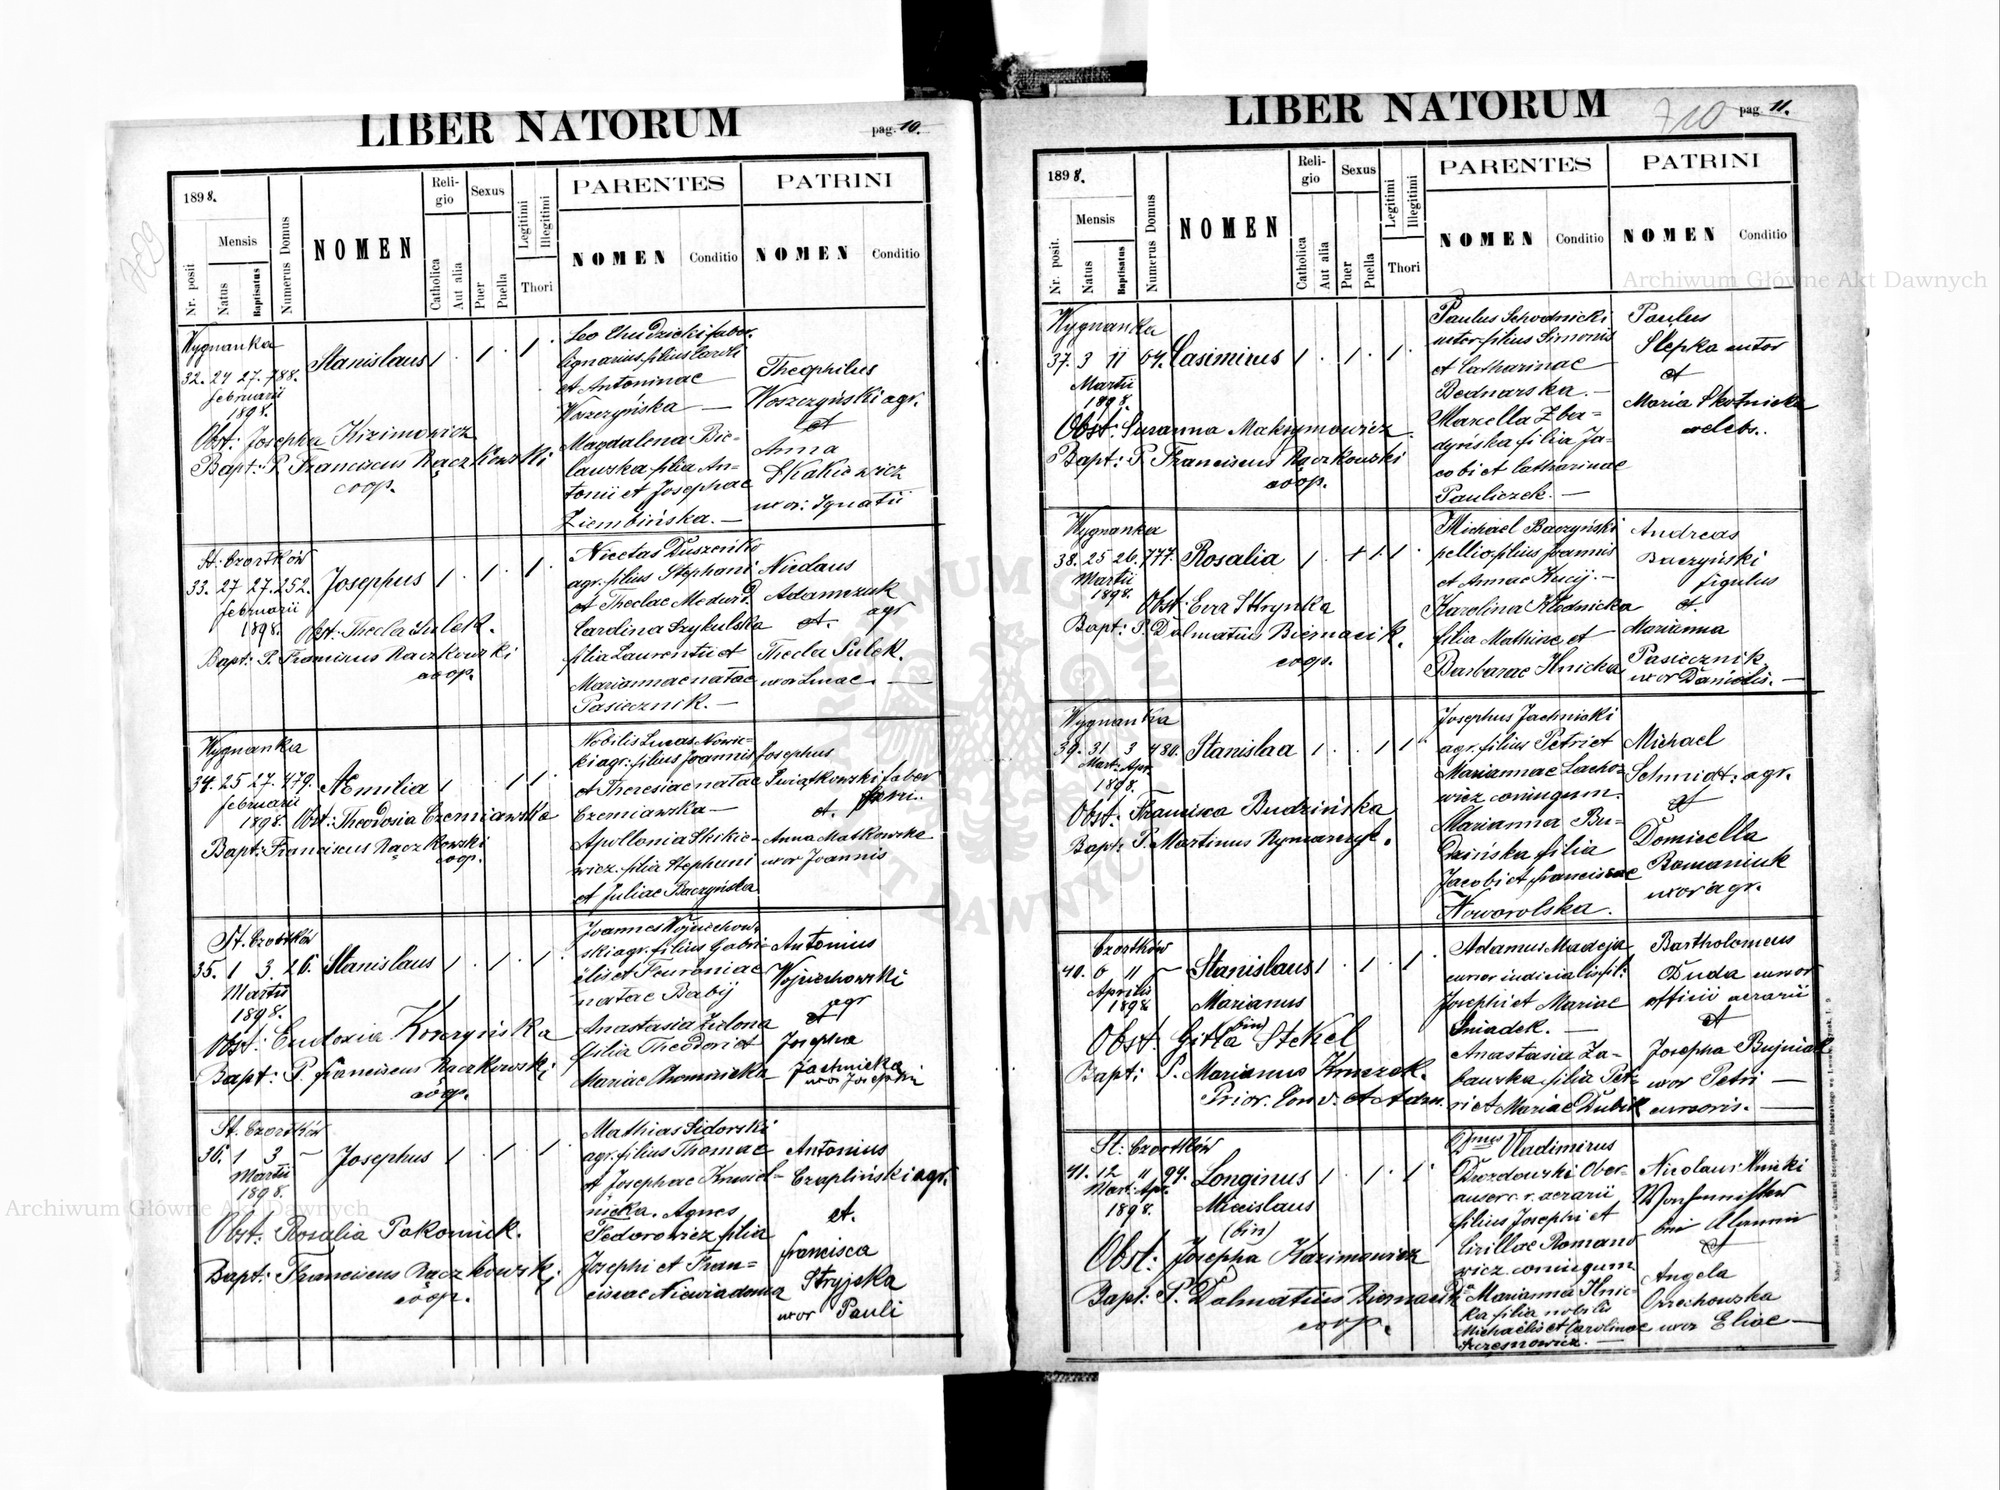 LIBER NATORUM
pag. 10.
1898.
Nr. posit
Mensis
Natus
Baptisatus
Numerus Domus
NOMEN
Religio
Catholica
Aut alia
Sexus
Puer
Puella
Legitimi
Illegitimi
Thori
PARENTES
NOMEN
Conditio
PATRINI
NOMEN
Conditio
Wygnanka
32. 24 27. 788.
februarii
1898.
Stanislaus
Obst: Josepha Kizimowicz
Bapt: P. Franciscus Rączkowski
coop.
Leo Chudzicki faber
lignarius filius Caroli
et Antoninae
Woszczyńska —
Magdalena Bie-
lawska filia An-
tonii et Josephae
Ziembińska. —
Theophilus
Woszczyński agr.
et
Anna
Skakiewicz
uxor: Ignatii
St. Czortków
33. 27 27. 252.
februarii
1898.
Josephus
Obst: Thecla Sulek.
Bapt: P. Franciscus Raczkowski
coop.
Nicetas Duszeńko
agr. filius Stephani
et Theclae Medwid
Carolina Szykulska
filia Laurentii et
Mariannae natae
Pasiecznik. —
Nicolaus
Adamczuk
agr
et.
Thecla Sulek.
uxor Lucae. —
Wygnanka
34. 25 27. 479.
februarii
1898.
Aemilia
Obst: Theodosia Czerniawska
Bapt: Franciscus Rączkowski
coop.
Nobilis Lucas Nowic-
ki agr. filius Joannis
et Theresiae natae
Czerniawska —
Apollonia Slikie-
wicz filia Stephani
et Juliae Baczyńska
Josephus
Swiątkowski faber
ferri.
et.
Anna Matkowska
uxor Joannis
St. Czortków
35. 1 3. 26.
Martii
1898.
Stanislaus
Obst: Eudoxia Korczyńska
Bapt: P. Franciscus Raczkowski
coop.
Joannes Wojciechow-
ski agr. filius Gabri-
elis et Feuroniae
natae Babij
Anastasia Zielona
filia Theodori et
Mariae Chominicka
Antonius
Wojciechowski
agr
et
Josepha
Jachnicka
uxor Josephi
St. Czortków
36. 1 3 —
Martii
1898.
Josephus
Obst: Rosalia Pakoznick.
Bapt: Franciscus Rączkowski
coop.
Mathias Sidorski
agr. filius Thomae
et Josephae
nicka. Agnes
Fedorowicz filia
Josephi et Fran-
ciscae Niewiadoma
Antonius
Czapliński agr.
et.
Francisca
Stryjska
uxor Pauli
LIBER NATORUM
710
pag. 11.
1898.
Nr. posit.
Mensis
Natus
Baptisatus
Numerus Domus
NOMEN
Religio
Catholica
Aut alia
Sexus
Puer
Puella
Legitimi
Illegitimi
Thori
PARENTES
NOMEN
Conditio
PATRINI
NOMEN
Conditio
Wygnanka
37. 3 11 04.
Martii
1898.
Casimirus
Obst: Susanna Maksymowicz.
Bapt: P. Franciscus Rączkowski
coop.
Paulus Schodnicki
sutor filius Simonis
et Catharinae
Bednarska. —
Marcella Zba-
dyńska filia Ja-
cobi et Catharinae
Pauliczek. —
Paulus
Slepka sutor
et
Maria Skotnicka
caelebs.
Wygnanka
38. 25 26. 777.
Martii
1898.
Rosalia
Obst: Eva Strynka
Bapt: P. Dalmatius Biernacik.
coop.
Michael Baczyński
pellio filius Joannis
et Annae Kucij. —
Karolina Kłodnicka
filia Mathiae et
Barbarae Ilnicka
Andreas
Baczyński
figulus
et.
Marianna
Pasiecznik
uxor Danielis. —
Wygnanka
39. 31 3 480.
Mart. Apr.
1898.
Stanislaa
Obst: Francisca Budzińska
Bapt: P. Martinus Rymarczyk.
Josephus Jachnicki
agr. filius Petri et
Mariannae Lacho-
wicz coniugum.
Marianna Bu-
dzińska filia
Jacobi et Franciscae
Noworolska.
Michael
Schmidt. agr.
et
Domicella
Romaniuk
uxor agr.
Czortków
40. 6 11 —
Aprilis
1898.
Stanislaus
Marianus
(bin)
Obst: Gitla Stekel
Bapt: P. Marianus Kruczek.
Prior. Conv. et Adm.
Adamus Madeja
cursor iudicialis fil:
Josephi et Mariae
Sniadek. —
Anastasia Za-
bawska filia Pet-
ri et Mariae Dubik
Bartholomeus
Duda cursor
officii aerarii
et
Josepha Bujniak
uxor Petri —
cursoris. —
St. Czortków
41. 12 11 94.
Mart. Apr.
1898.
Longinus
Miecislaus
(bin)
Obst: Josepha Kazimowicz
Bapt: P. Dalmatius Biernacik
coop.
Dmus Vladimirus
Drozdowski Ober-
aufser r. aerarii
filius Josephi et
Cirillae Romano-
wicz coniugum
Da Marianna Ilnic-
ka filia nobilis
Michaelis et Carolinae
Nicolaus Ilnicki
et
Angela
Orzechowska
uxor Eliae —
Archiwum Główne Akt Dawnych
Archiwum Główne Akt Dawnych
ARCHIWUM GŁÓWNE AKT DAWNYCH